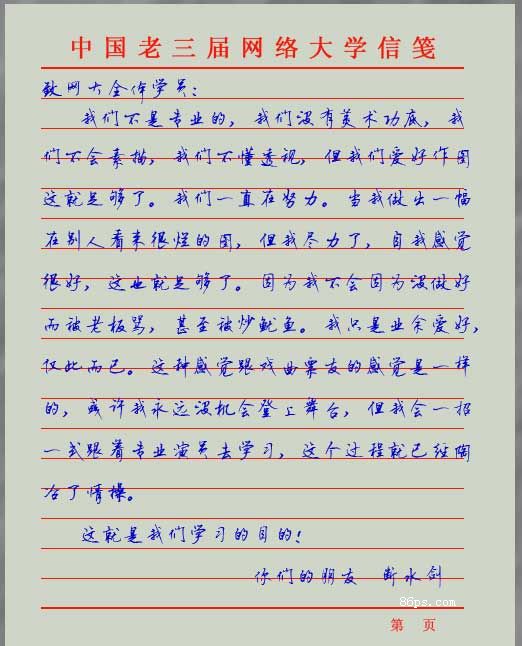 中国老三届网络大学信笺
致网大全体学员：
我们不是专业的，我们没有美术功底，我
们不会素描，我们不懂透视，但我们爱好作图
这就足够了。我们一直在努力。当我做出一幅
在别人看来很烂的图，但我尽力了，自我感觉
很好，这也就足够了。因为我不会因为没做好
而被老板骂，甚至被炒鱿鱼。我只是业余爱好，
仅此而已。这种感觉跟戏曲票友的感觉是一样
的，或许我永远没机会登上舞台，但我会一招
一式跟着专业演员去学习，这个过程就已经陶
冶了情操。
这就是我们学习的目的！
你们的朋友 断水剑
86ps.com
第 页